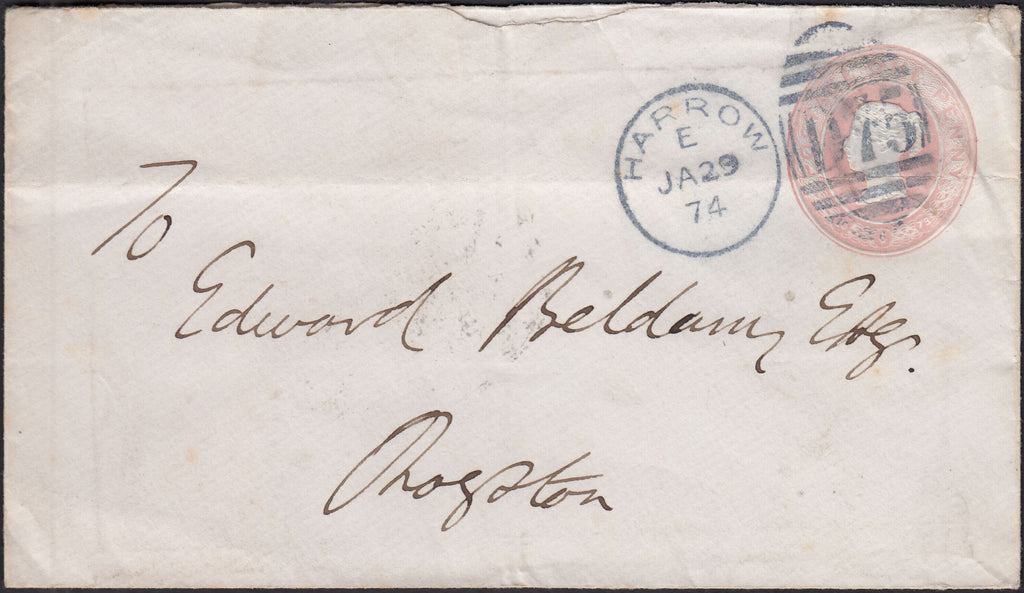 HARROW
E
JA 29
74
PENNY
To
Edward Beldam, Esq.
Royston